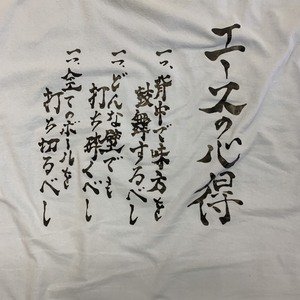 エースの心得
一、背中で味方を
鼓舞するべし
一、どんな壁でも
打ち砕くべし
一、全てのボールを
打ち切るべし